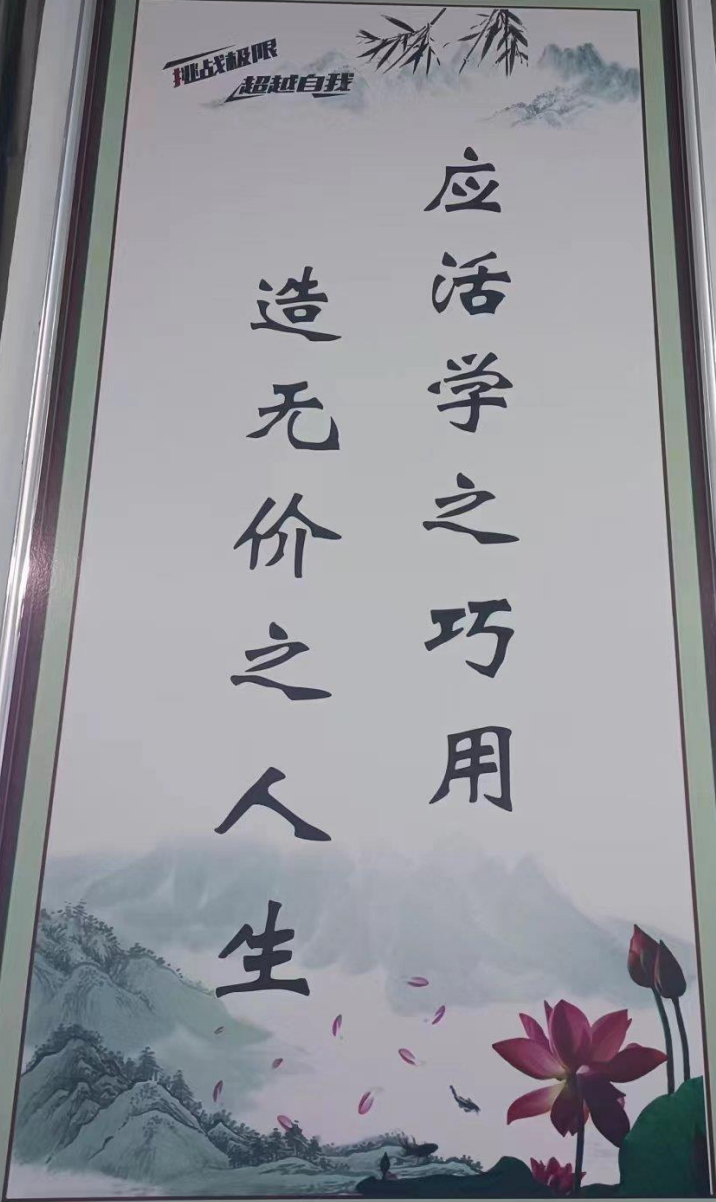 挑战极限
超越自我
应活学之巧用
造无价之人生